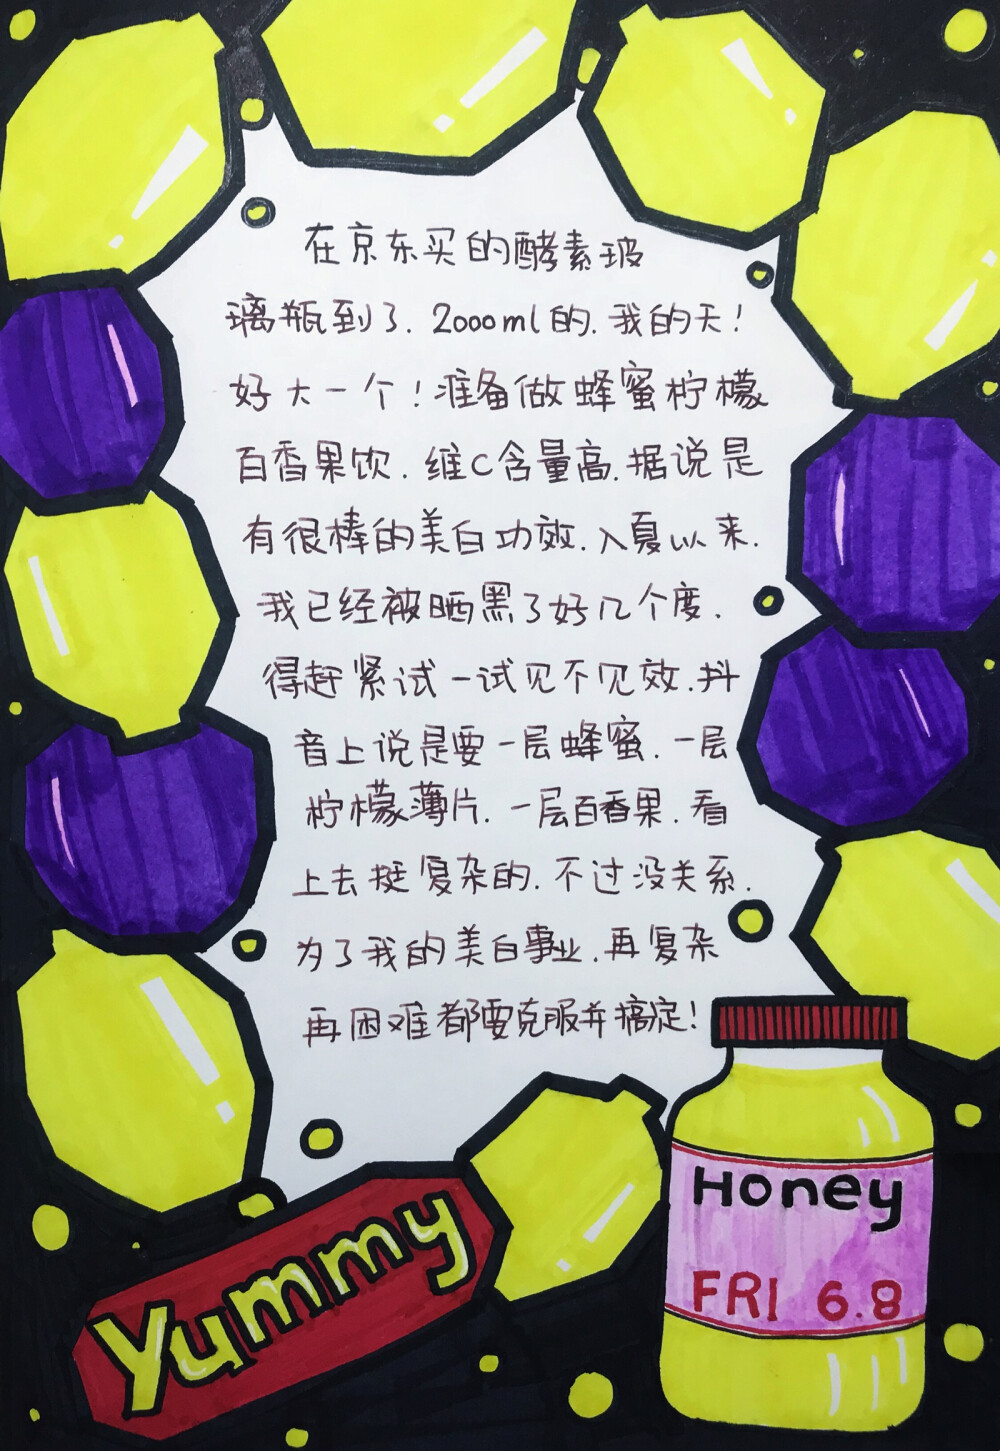 在京东买的酵素玻
璃瓶到了.2000ml的.我的天!
好大一个!准备做蜂蜜柠檬
百香果饮.维C含量高.据说是
有很棒的美白功效.入夏以来.
我已经被晒黑了好几个度.
得赶紧试一试见不见效.抖
音上说是要一层蜂蜜.一层
柠檬薄片.一层百香果.看
上去挺复杂的.不过没关系.
为了我的美白事业.再复杂
再困难都要克服并搞定!
Honey
FRI 6.8
Yummy